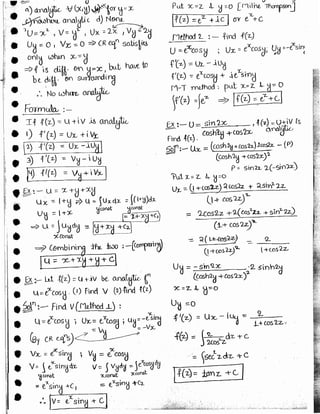 a) analytic ∀(x,y) b) for y=x
c) nowhere analytic d) None
U = x² , V = y² , Ux = 2x , Vy = 2y
Uy = 0 , Vx = 0 ⇒ CR eqⁿ satisfies
only when x=y
⇒ f is diff. on y=x, but have to
be diff. on surrounding
∴ No where analytic
Formula :-
If f(z) = u+iv is analytic
1) f'(z) = Ux + iVx
2) f'(z) = Ux - iUy
3) f'(z) = Vy - iUy
4) f'(z) = Vy + iVx
Ex:- U = x+y+xy
Ux = 1+y ⇒ u = ∫Ux dx = ∫(1+y)dx
y const y const
Uy = 1+x = x+xy+c₁
⇒ u = ∫Uy dy = y+xy+c₂
x const
⇒ Combining the two :- (comparing)
u = x+xy+y+c
Ex:- Let f(z) = u+iv be analytic fⁿ
u = eˣcosy (1) Find V (2) find f(z)
Solⁿ:- Find V (Method 1) :
u = eˣcosy ; Ux = eˣcosy ; Uy = -eˣsiny
(By CR eqⁿs) = Vy = -Vx
Vx = eˣsiny ; Vy = eˣcosy
V = ∫eˣsiny dx V = ∫Vy dy = ∫eˣcosy dy
y const x const x const
= eˣsiny + c₁ = eˣsiny + c₂
∴ V = eˣsiny + c
Put x=z & y=0 [Milne Thompson]
f(z) = eᶻ + ic or eᶻ + c
Method 2 :- find f(z)
U = eˣcosy ; Ux = eˣcosy, Uy = -eˣsiny
f'(z) = Ux - iUy
f'(z) = eˣcosy + ieˣsiny
M-T method : put x=z & y=0
∫f'(z) = ∫eᶻ ⇒ f(z) = eᶻ + c
Ex:- U = sin2x / cosh2y + cos2x , f(z) = U+iV is analytic
Find f(z).
Solⁿ:- Ux = (cosh2y + cos2x) 2cos2x - (P) / (cosh2y + cos2x)²
P = sin2x 2(-sin2x)
Put x=z & y=0
Ux = (1+cos2z) 2cos2z + 2sin²2z / (1+cos2z)²
= 2cos2z + 2(cos²2z + sin²2z) / (1+cos2z)²
= 2(1+cos2z) / (1+cos2z)² = 2 / 1+cos2z
Uy = -sin2x / (cosh2y + cos2x)² · 2 sinh2y
x=z & y=0
Uy = 0
f'(z) = Ux - iuy = 2 / 1+cos2z
f(z) = ∫ 2 / 2cos²z dz + c
= ∫sec²z dz + c
f(z) = tanz + c